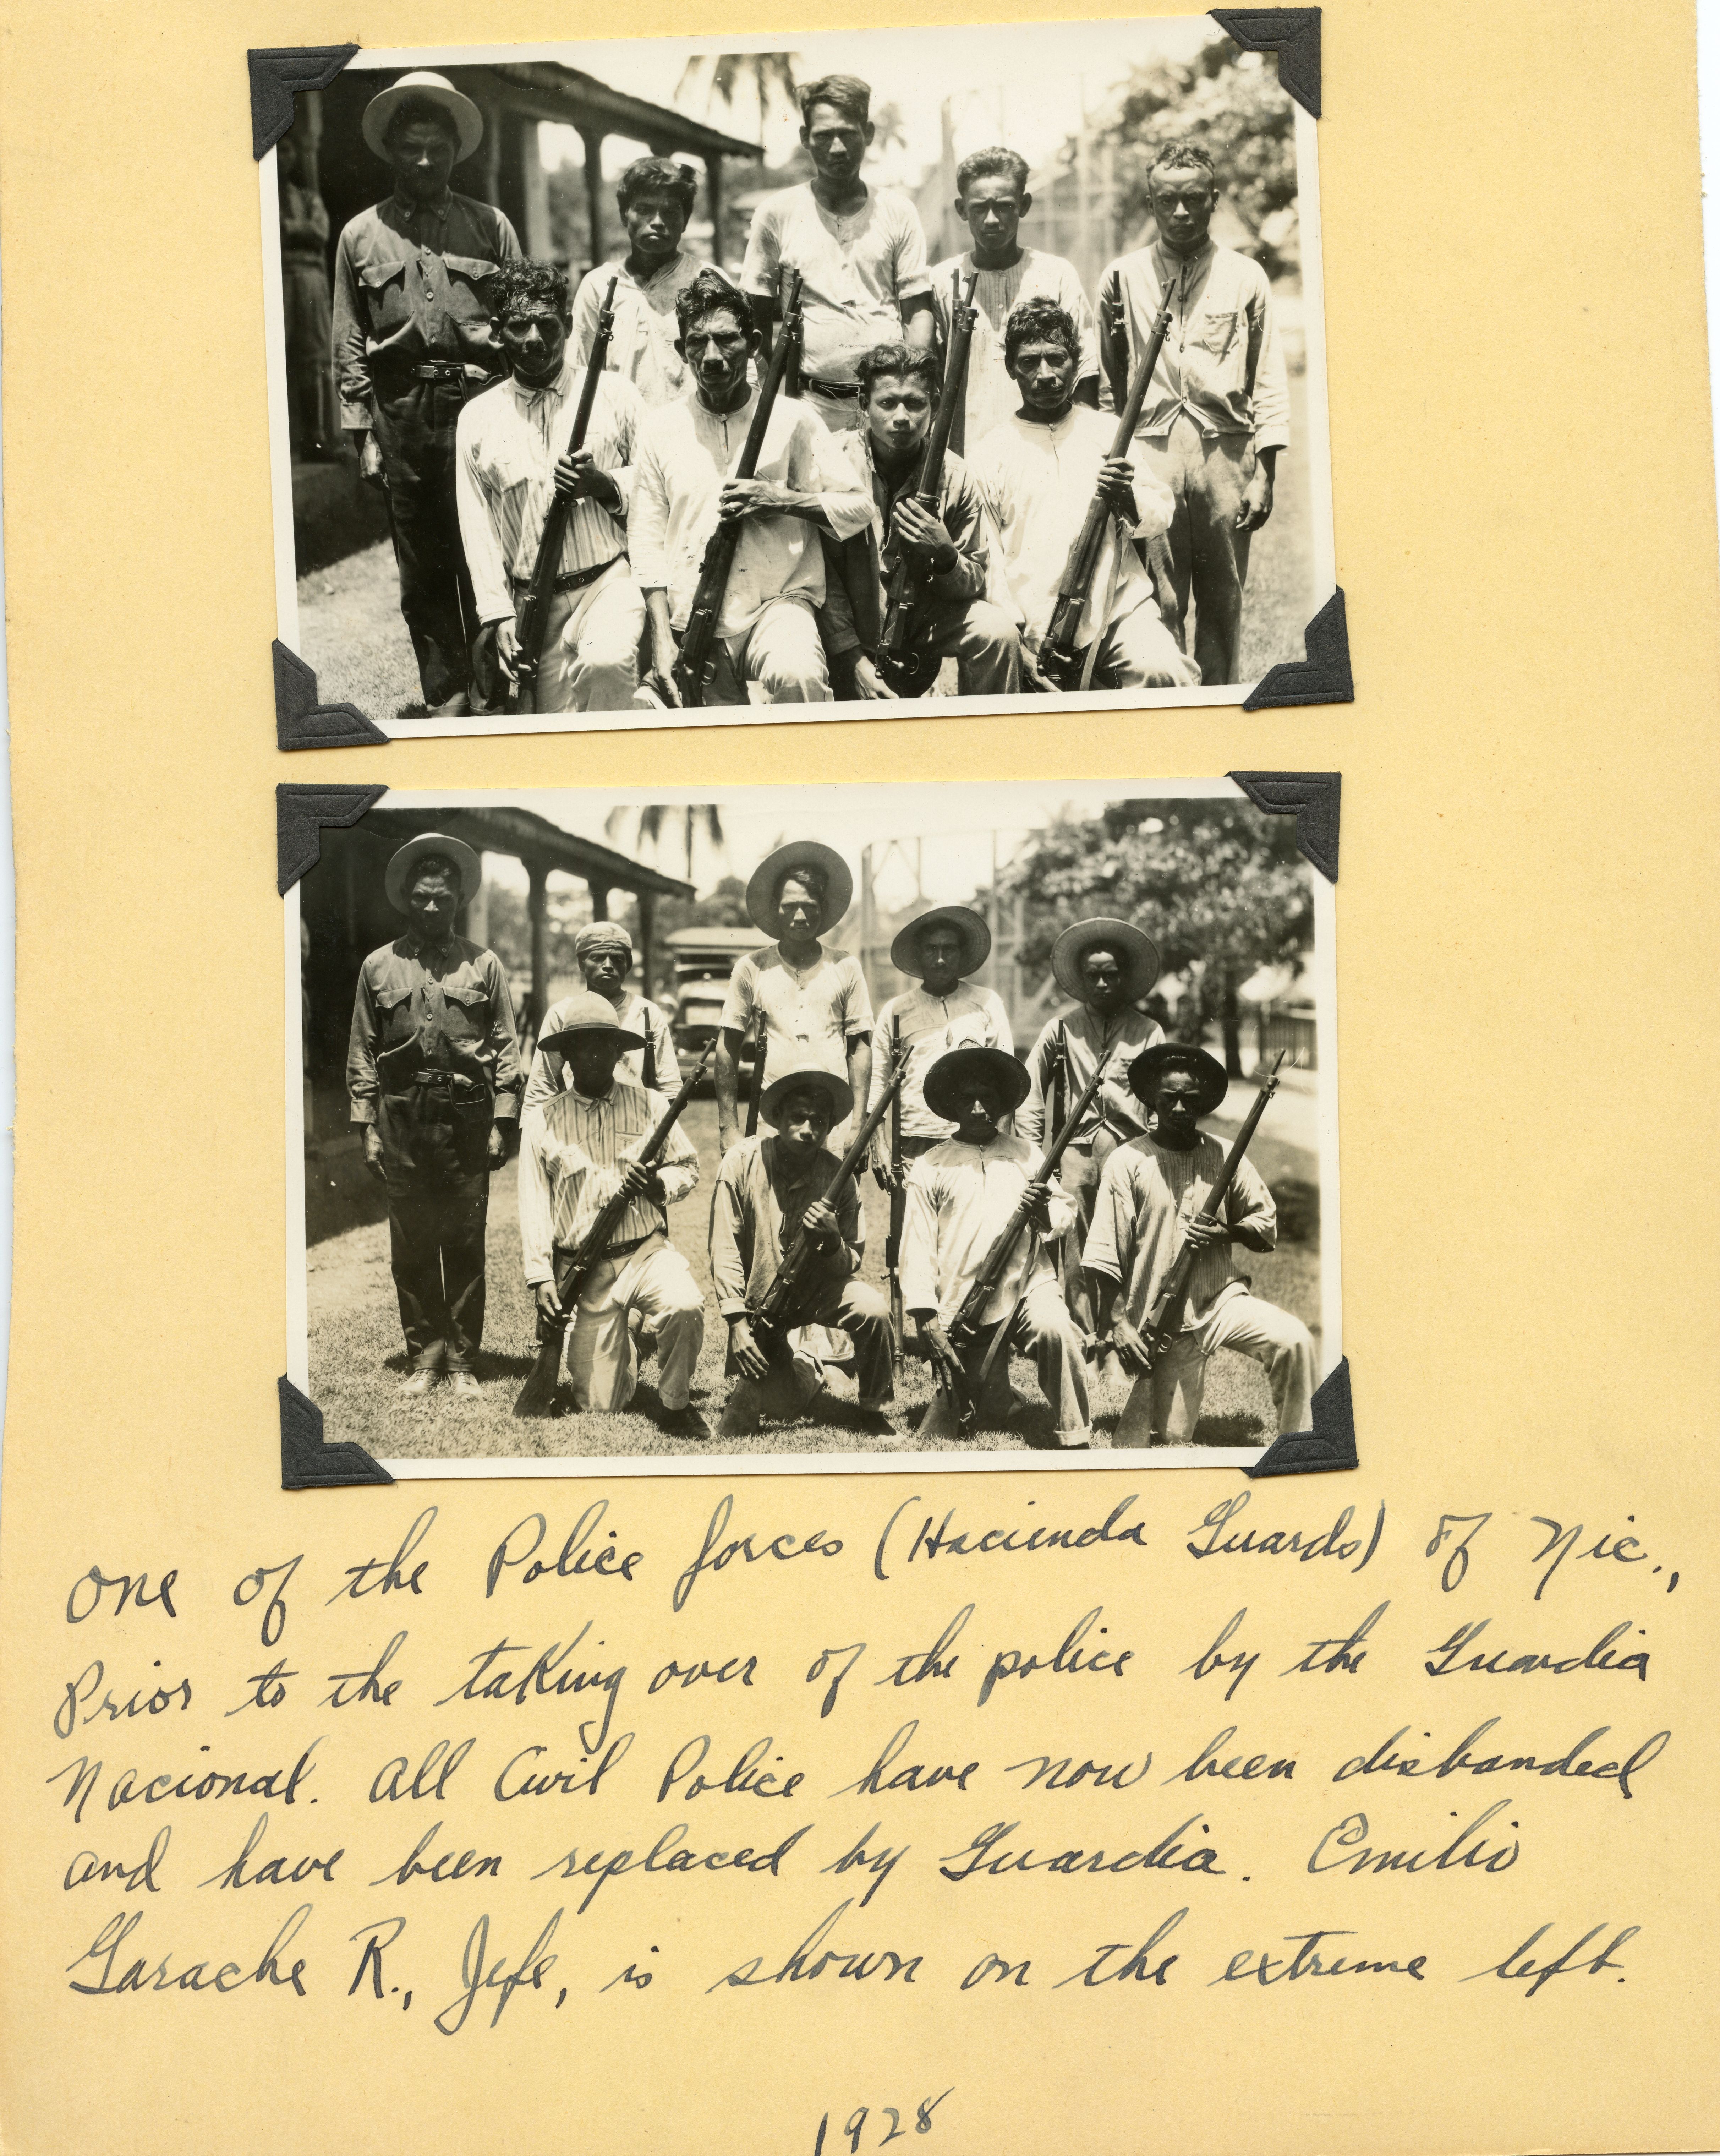 One of the Police forces (Hacienda Guards) of Nic.,
Prior to the taking over of the police by the Guardia
Nacional. All Civil Police have now been disbanded
and have been replaced by Guardia. Emilio
Garache R., Jefe, is shown on the extreme left.
1928